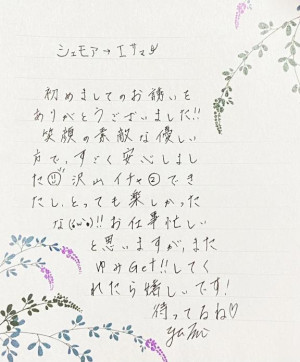 シェモア→エサマ
初めましてのお誘いを
ありがとうございました!!
笑顔の素敵な優しい
方で、すごく安心しまし
た 沢山イチャ②でき
たし、とっても楽しかった
な(^^)!! お仕事忙しい
と思いますが、また
ゆみGet!!してく
れたら嬉しいです!
待ってるね♡